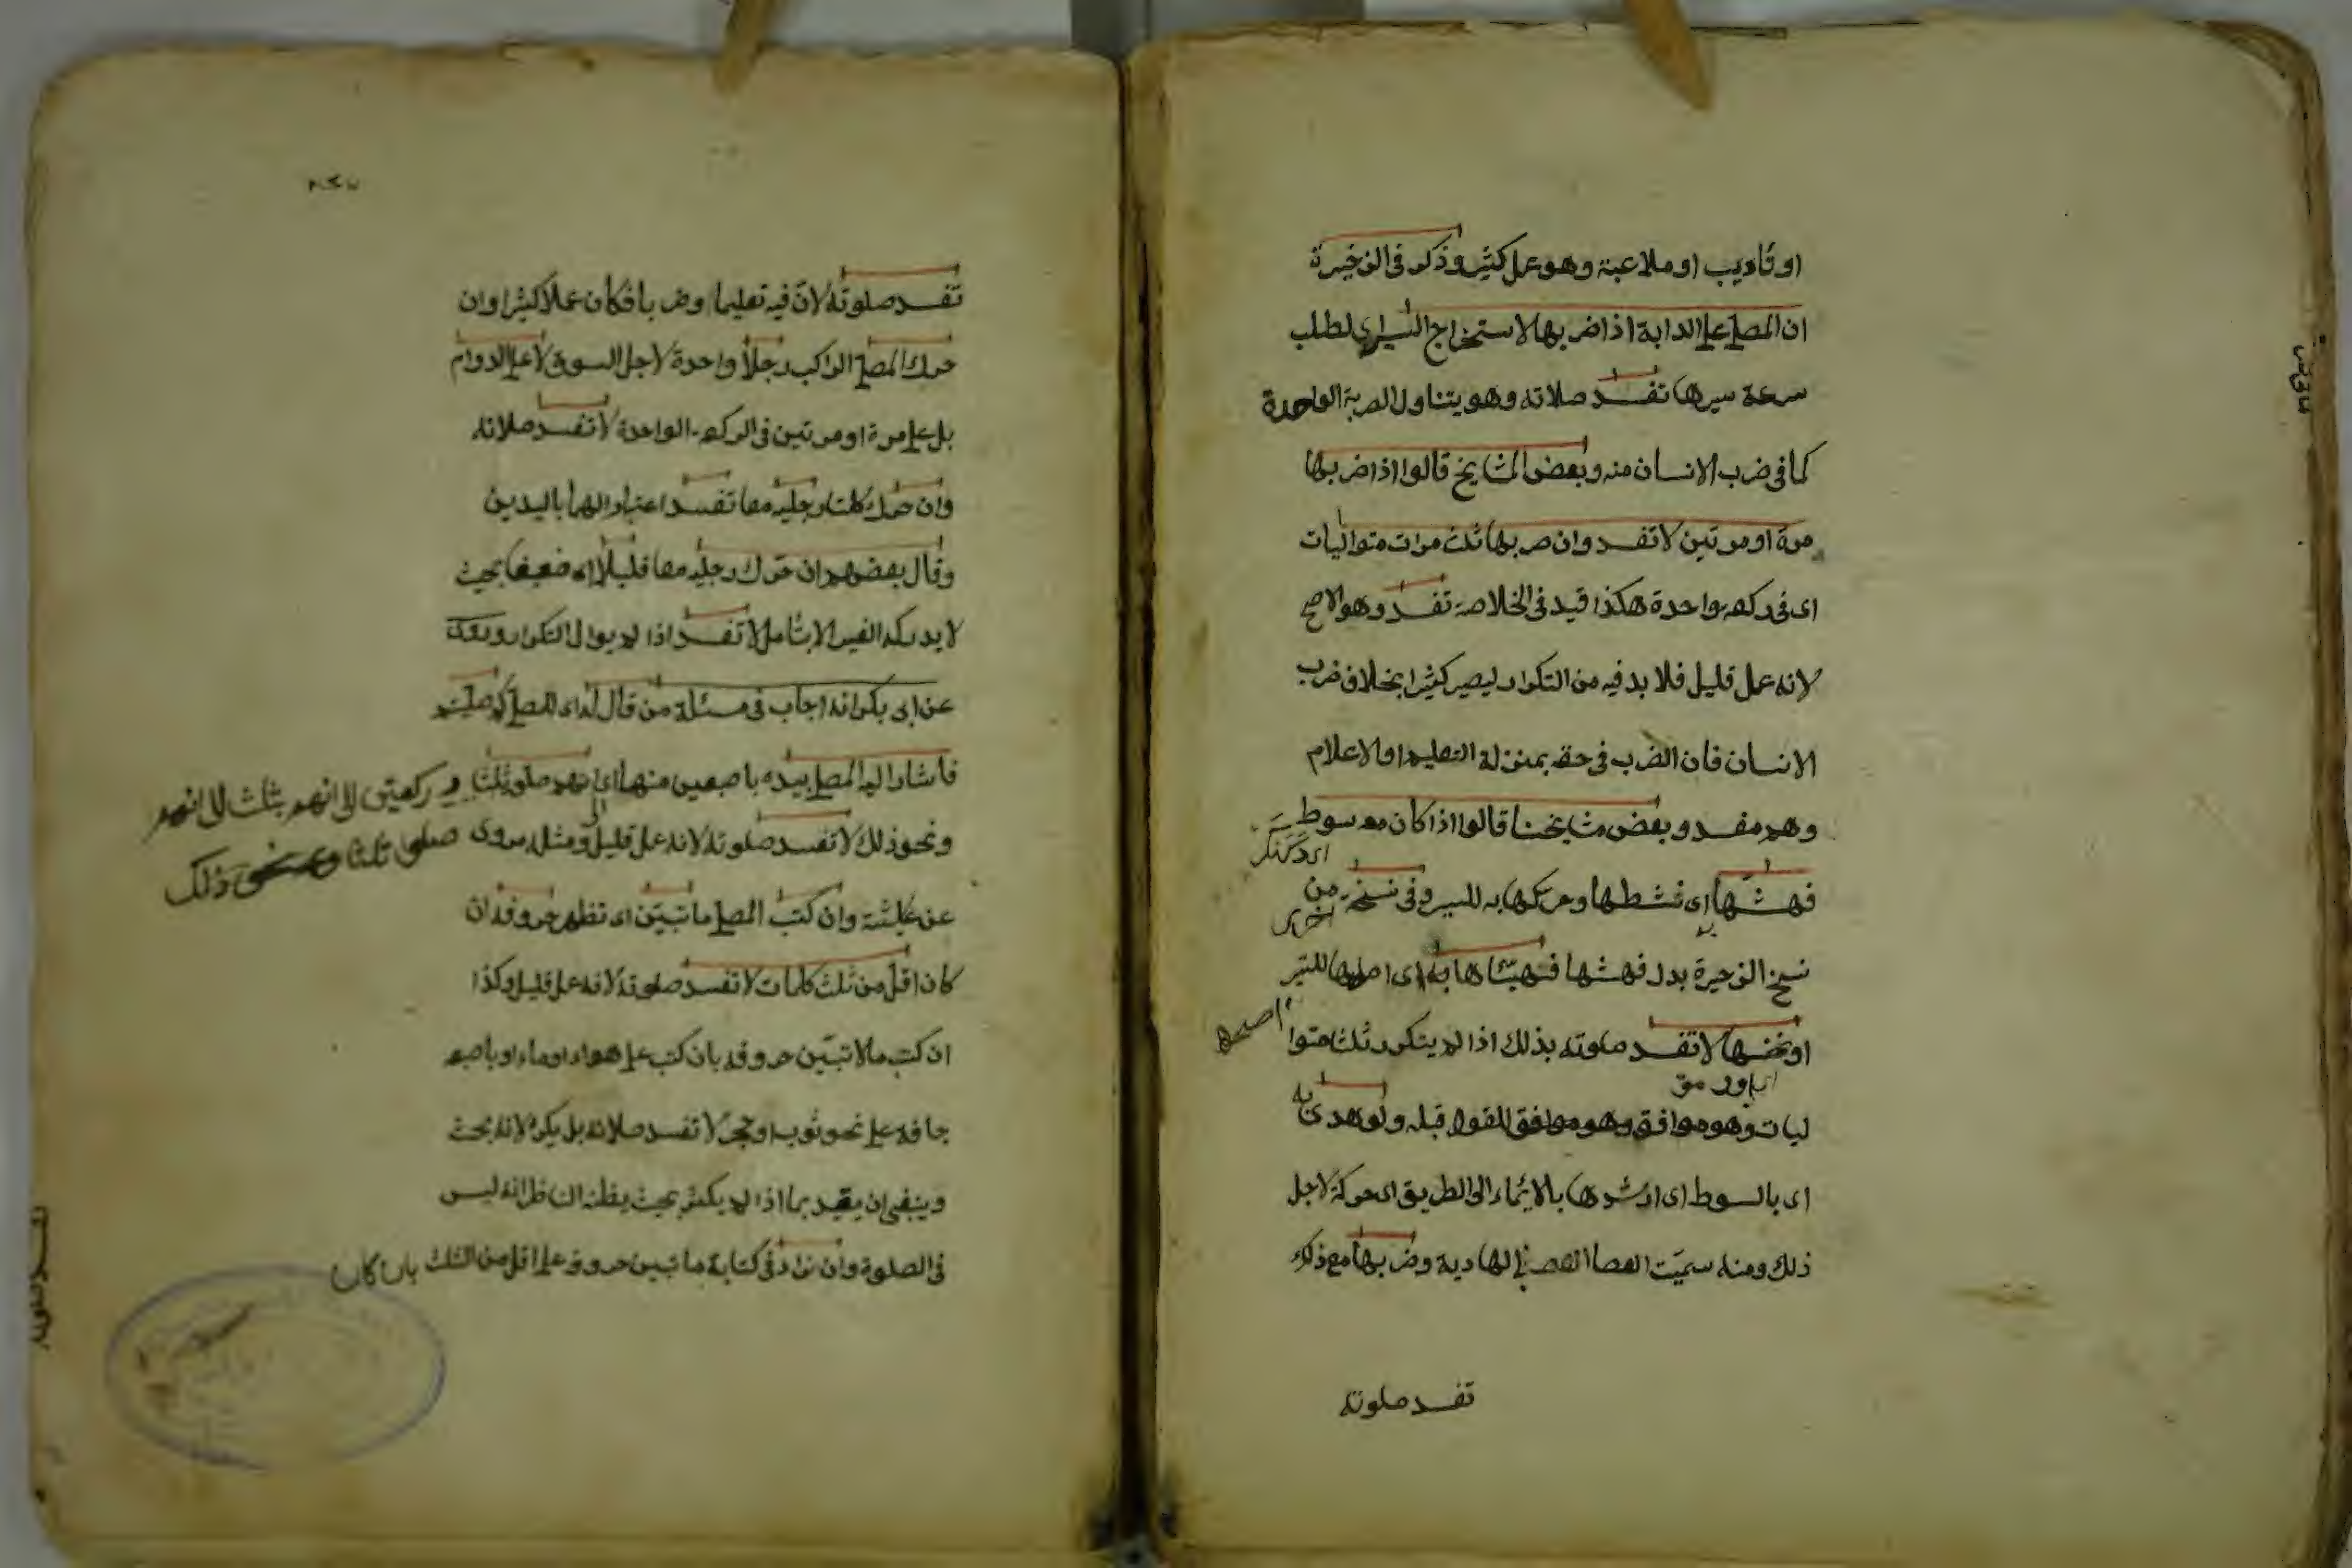 او تأديب او ملاعبة وهو عمل كثير وذكر فى الذخيرة
ان المصلى على الدابة اذا ضربها لاستخراج السير اى لطلب
سرعة سيرها تفسد صلاته وهو يتناول الضربة الواحدة
كما فى ضرب الانسان منه وبعض المشايخ قالوا اذا ضربها
مرة او مرتين لا تفسد وان ضربها ثلث مرات متواليات
اى فى ركعة واحدة هكذا قيد فى الخلاصة تفسد وهو الاصح
لانه عمل قليل فلا بد فيه من التكرار ليصير كثيرا بخلاف ضرب
الانسان فان الضرب فى حقه بمنزلة التعليم او الاعلام
وهو مفسد وبعض مشايخنا قالوا اذا كان معه سوط
فهشها اى نشطها وحركها به للسير وفى نسخة من
اخرى
نسخ الذخيرة بدل فهشها فهيّأها به اى اصلحها للسير
اصلحها
او نخسها لا تفسد صلوته بذلك اذا لم يتكرر ثلثا متوا
ليات وهو موافق وهو موافق للقول قبله ولو هدى به
اى بالسوط اى ارشدها بالايماء الى الطريق اى حركه لاجل
ذلك ومنه سميت العصا الهادية وضربها مع ذلك
تفسد صلوته
تفسد صلوته لان فيه تعليما وضربا فكان عملا كثيرا وان
حرك المصلى الراكب رجلا واحدة لاجل السوق لا على الدوام
بل على مرة او مرتين فى الركعة الواحدة لا تفسد صلاته
وان حرك كلتا رجليه معا تفسد اعتبارا لهما باليدين
وقال بعضهم ان حرك رجليه معا قليلا اى ضعيفا بحيث
لا يدركه الغير الا بتأمل لا تفسد اذا لم يوال التكرار وروى
عن ابى بكر انه اجاب فى مسئلة من قال له اى للمصلى كم صليتم
فاشار اليه المصلى بيده باصبعين منها اى انهم صلوا ثلثا
ركعتين الى انهم بثلث الى انهم
ونحو ذلك لا تفسد صلوته لانه عمل قليل ومثله مروى
صلوا ثلثا ونحو ذلك
عن عائشة وان كتب المصلى ما تبين اى تظهر حروفه ان
كان اقل من ثلث كلمات لا تفسد صلوته لانه عمل قليل وكذا
ان كتب ما لا تبين حروفه بان كتب على هواء او ماء او باصبعه
جافة على نحو ثوب او حجر لا تفسد صلاته بل يكره لانه عبث
وينبغى ان يقيد بما اذا لم يكثر بحيث يظنه الناظر انه ليس
فى الصلوة وان زاد فى كتابة ما تبين حروفه على اقل من الثلث بان كان